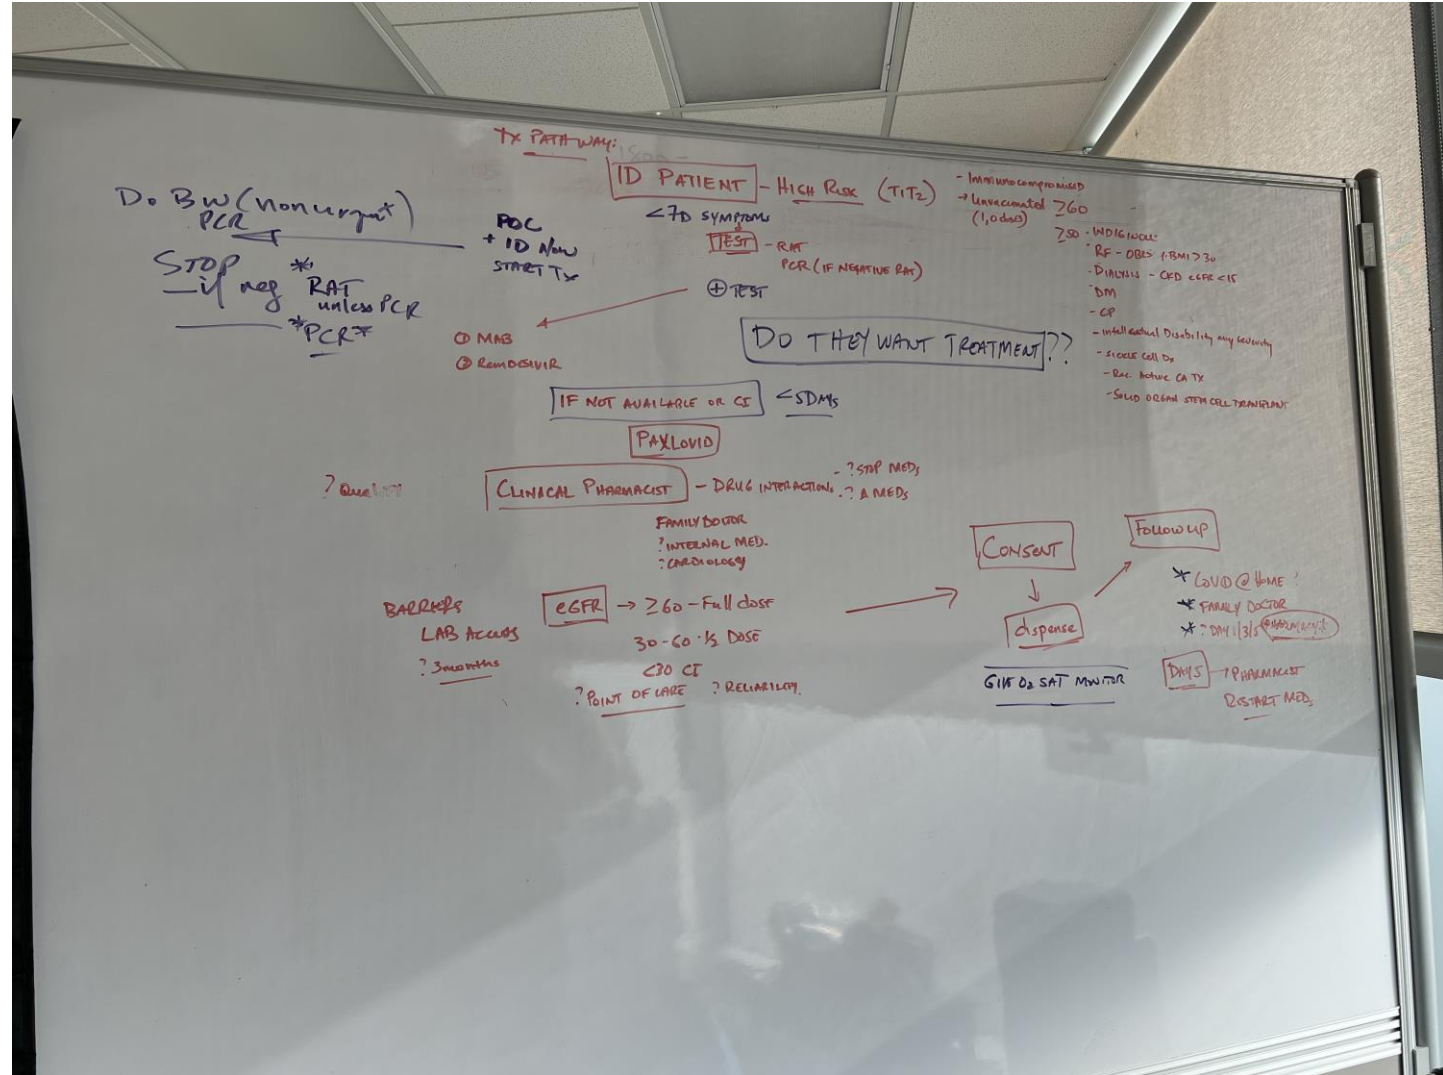 Tx PATHWAY:
ID PATIENT - HIGH RISK (T1T2)
- Immunocompromised
→ Unvaccinated ≥60
(1,0 doses)
≥50 - INDIGENOUS
RF - OBES (BMI >30
· DIALYSIS - CKD eGFR <15
DM
- CP
- intellectual Disability any severity
- SICKLE CELL Dx
- Rec. Active CA TX
- SOLID ORGAN STEM CELL TRANSPLANT
<7D SYMPTOMS
TEST - RAT
PCR (IF NEGATIVE RAT)
⊕ TEST
Do BW (nonurgent)
PCR
STOP
if neg * RAT
unless PCR
*PCR*
POC
+ ID Now
START Tx
① MAB
② REMDESIVIR
DO THEY WANT TREATMENT??
IF NOT AVAILABLE OR CI <5DAYS
PAXLOVID
CLINACAL PHARMACIST - DRUG INTERACTIONS - ? STOP MEDS
- ? Δ MEDS
FAMILY DOCTOR
? INTERNAL MED.
? CARDIOLOGY
BARRIERS
LAB ACCESS
? 3 months
eGFR → ≥60 - Full dose
30-60 · ½ DOSE
<30 CI
? POINT OF CARE ? RELIABILITY.
CONSENT
dispense
GIVE O2 SAT MONITOR
Follow up
* COVID @ HOME ?
* FAMILY DOCTOR
* ? DAY 1/3/5
DAY5 → PHARMACIST
RESTART MEDS